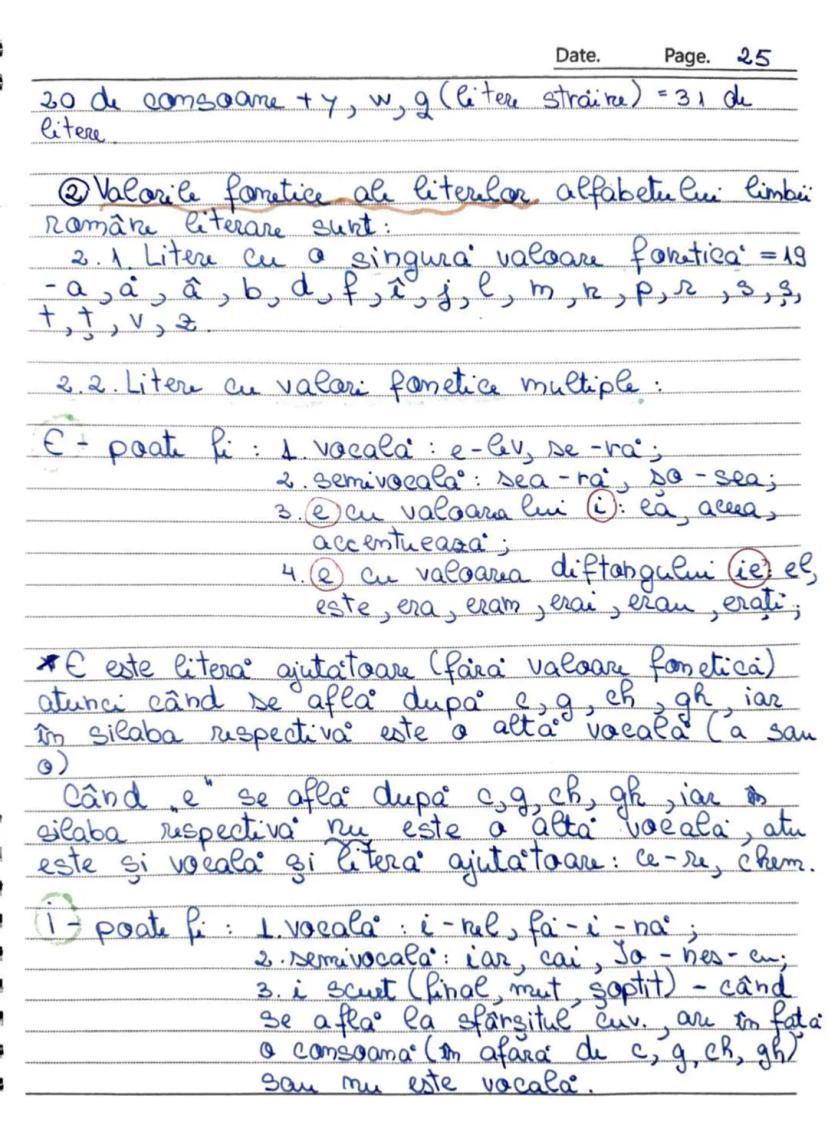 Date. Page. 25
20 de consoane + y, w, q (litere străine) = 31 de
litere.
② Valorile fonetice ale literelor alfabetului limbii
române literare sunt:
2.1. Litere cu o singură valoare fonetică = 19
- a, ă, â, b, d, f, î, j, l, m, n, p, r, s, ș,
t, ț, v, z.
2.2. Litere cu valori fonetice multiple:
E - poate fi: 1. vocală: e-lev, se-ră;
2. semivocală: sea-ră, șo-sea;
3. e cu valoarea lui i: ea, aceea,
accentuează;
4. e cu valoarea diftongului ie: el,
este, era, eram, erai, erau, erați;
* E este literă ajutătoare (fără valoare fonetică)
atunci când se află după c, g, ch, gh, iar
în silaba respectivă este o altă vocală (a sau
o)
Când „e" se află după c, g, ch, gh, iar în
silaba respectivă nu este o altă vocală, atu
este și vocală și literă ajutătoare: ce-re, chem.
i - poate fi: 1. vocală: i-nel, fă-i-nă;
2. semivocală: iar, cai, Io-nes-cu;
3. i scurt (final, mut, șoptit) - când
se află la sfârșitul cuv., are în față
o consoană (în afară de c, g, ch, gh)
sau nu este vocală.